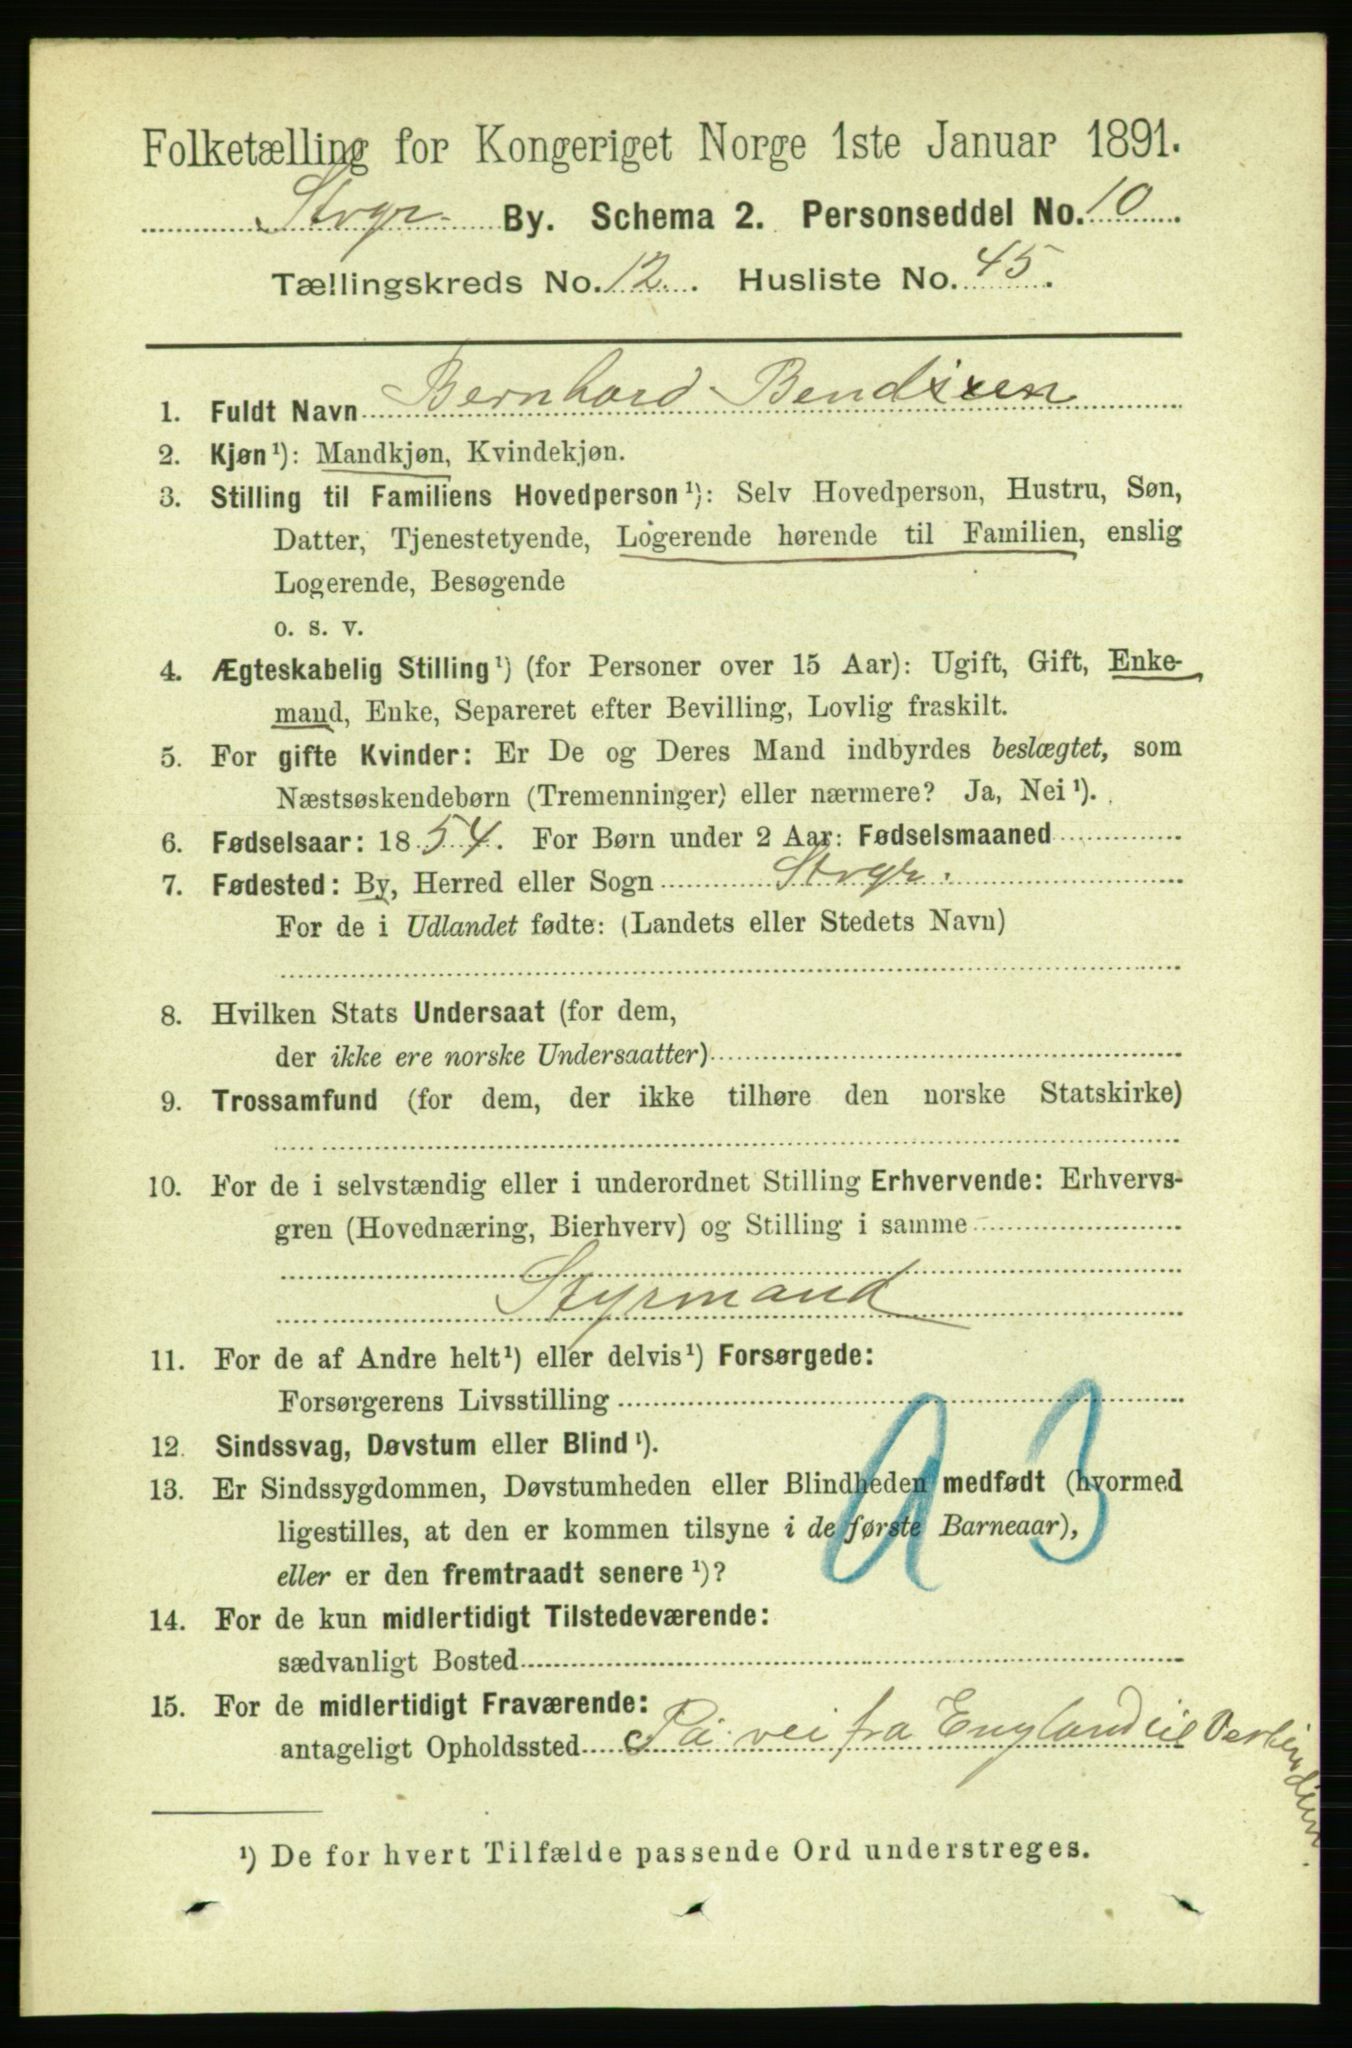 Folketælling for Kongeriget Norge 1ste Januar 1891.
Stvgr. By. Schema 2. Personseddel No. 10.
Tællingskreds No. 12. Husliste No. 45.
1. Fuldt Navn Bernhard Bendixen
2. Kjøn¹): Mandkjøn, Kvindekjøn.
3. Stilling til Familiens Hovedperson¹): Selv Hovedperson, Hustru, Søn,
Datter, Tjenestetyende, Logerende hørende til Familien, enslig
Logerende, Besøgende
o. s. v.
4. Ægteskabelig Stilling¹) (for Personer over 15 Aar): Ugift, Gift, Enke-
mand, Enke, Separeret efter Bevilling, Lovlig fraskilt.
5. For gifte Kvinder: Er De og Deres Mand indbyrdes beslægtet, som
Næstsøskendebørn (Tremenninger) eller nærmere? Ja, Nei¹).
6. Fødselsaar: 1854. For Børn under 2 Aar: Fødselsmaaned
7. Fødested: By, Herred eller Sogn Stvgr.
For de i Udlandet fødte: (Landets eller Stedets Navn)
8. Hvilken Stats Undersaat (for dem,
der ikke ere norske Undersaatter)
9. Trossamfund (for dem, der ikke tilhøre den norske Statskirke)
10. For de i selvstændig eller i underordnet Stilling Erhvervende: Erhvervs-
gren (Hovednæring, Bierhverv) og Stilling i samme
Styrmand
11. For de af Andre helt¹) eller delvis¹) Forsørgede:
Forsørgerens Livsstilling
12. Sindssvag, Døvstum eller Blind¹).
13. Er Sindssygdommen, Døvstumheden eller Blindheden medfødt (hvormed
ligestilles, at den er kommen tilsyne i de første Barneaar),
eller er den fremtraadt senere¹)?
14. For de kun midlertidigt Tilstedeværende:
sædvanligt Bosted
15. For de midlertidigt Fraværende:
antageligt Opholdssted På vei fra England til Vestindien.
¹) De for hvert Tilfælde passende Ord understreges.